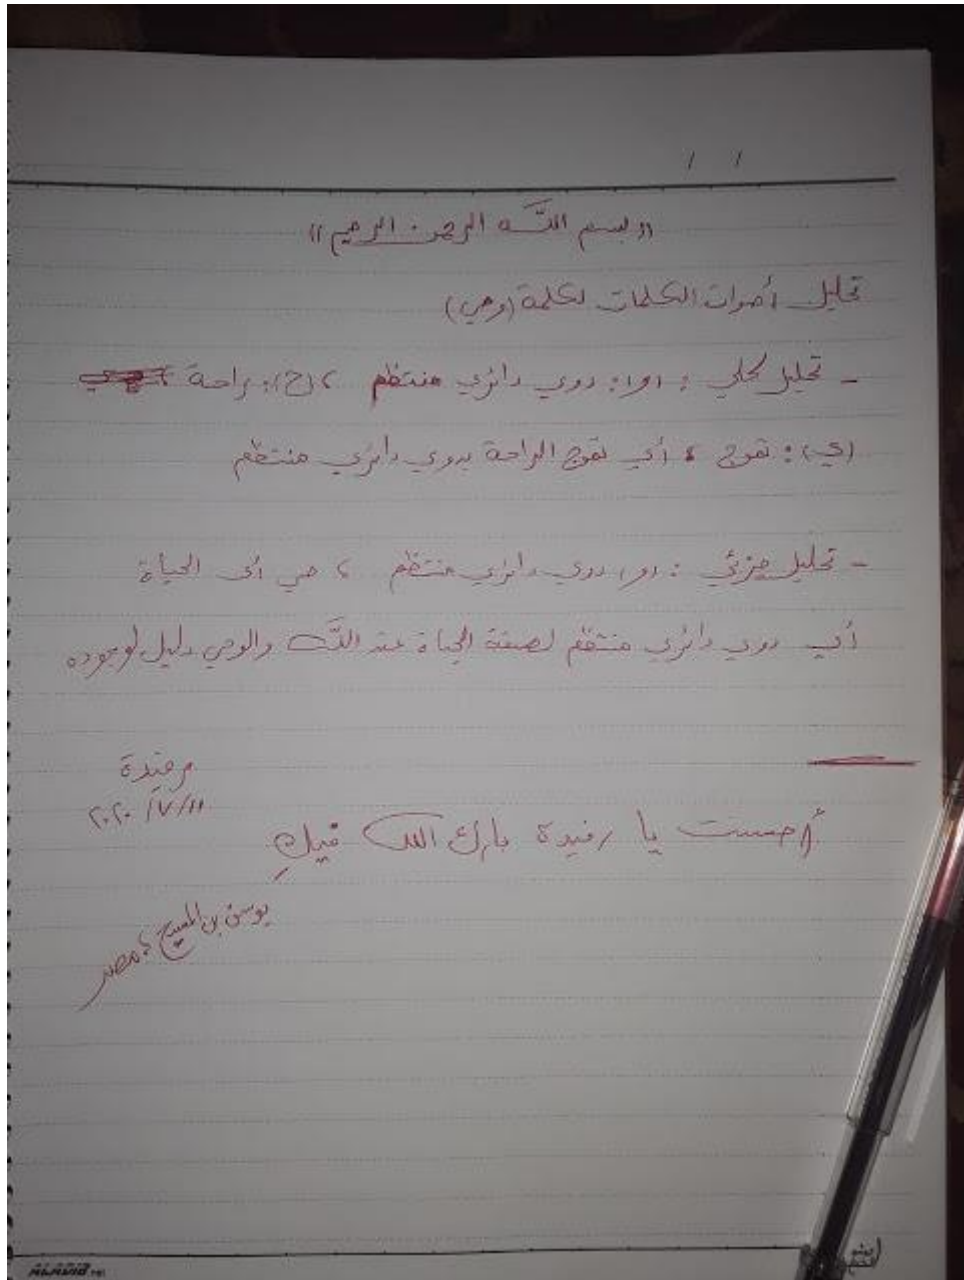 / /
«بسم اللَّه الرحمن الرحيم»
تحليل أصوات الكلمات لكلمة (وحي)
- تحليل كلي : (و): دوي دائري منتظم ، (ح): راحة ،
(ي): تموج ، أي تموج الراحة بدوي دائري منتظم
- تحليل جزئي : (و) دوي دائري منتظم ، حي أي الحياة
أي دوي دائري منتظم لصفة الحياة عند اللَّه والوحي دليل لوجوده
رفيدة
١١/٧/٢٠٢٠
أحسنت يا رفيدة بارك الله فيكِ
يوسف بن المسيح ، مصر